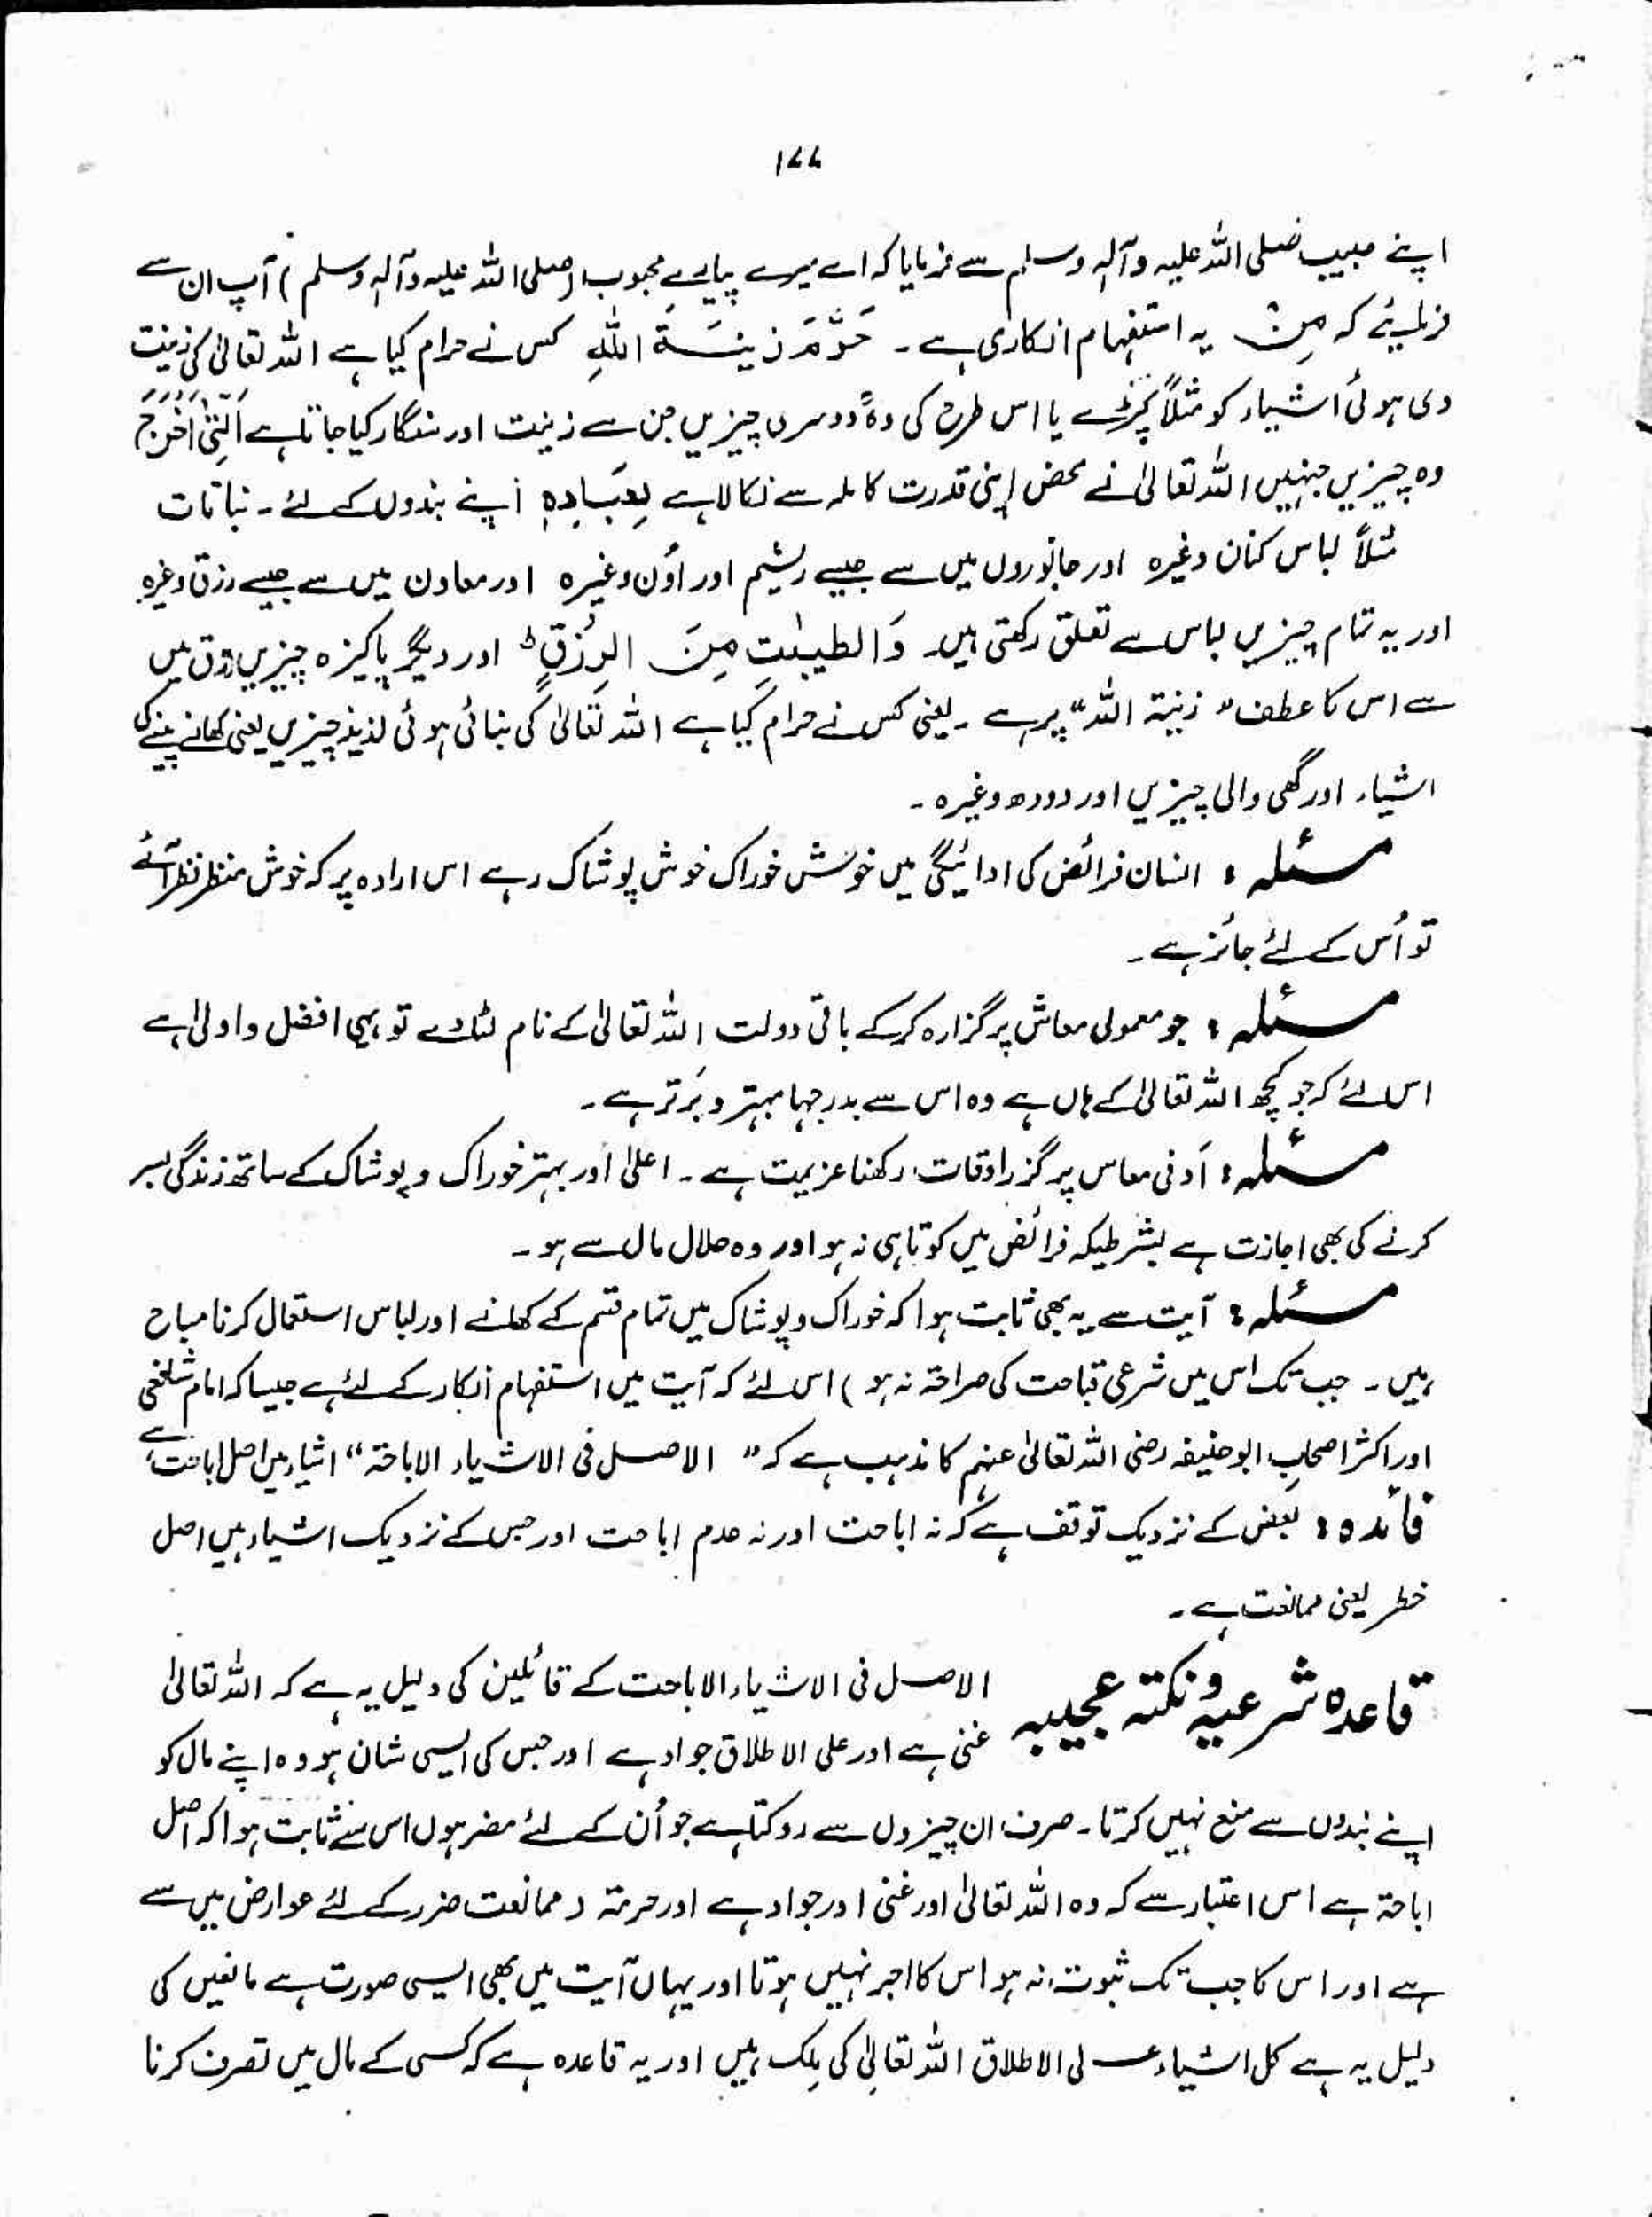 ۱۷۷
اپنے حبیب صلی اللہ علیہ وآلہٖ وسلم سے فرمایا کہ اے میرے پیارے محبوب (صلی اللہ علیہ وآلہٖ وسلم) آپ ان سے
فرمایئے کہ مِنْ یہ استفہام انکاری ہے ۔ حَرَّمَ زِیْنَۃَ اللّٰہِ کس نے حرام کیا ہے اللہ تعالیٰ کی زینت
دی ہوئی اشیاء کو مثلاً کپڑے یا اس طرح کی وہ دوسری چیزیں جن سے زینت اور سنگار کیا جاتا ہے الَّتِیْ اَخْرَجَ
وہ چیزیں جنہیں اللہ تعالیٰ نے محض اپنی قدرت کاملہ سے نکالا ہے لِعِبَادِہٖ اپنے بندوں کے لئے ۔ نباتات
مثلاً لباس کتان وغیرہ اور جانوروں میں سے جیسے ریشم اور اُون وغیرہ اور معادن میں سے جیسے رزق وغیرہ
اور یہ تمام چیزیں لباس سے تعلق رکھتی ہیں۔ وَالطیبٰتِ مِنَ الرِزْقِ ط اور دیگر پاکیزہ چیزیں رزق میں
سے اس کا عطف "زینۃ اللہ" پر ہے ۔ یعنی کس نے حرام کیا ہے اللہ تعالیٰ کی بنائی ہوئی لذیذ چیزیں یعنی کھانے پینے کی
اشیاء اور گھی والی چیزیں اور دودھ وغیرہ ۔
مسئلہ : انسان فرائض کی ادائیگی میں خوش خوراک خوش پوشاک رہے اس ارادہ پر کہ خوش منظر نظر آئے
تو اُس کے لئے جائز ہے ۔
مسئلہ : جو معمولی معاش پر گزارہ کر کے باقی دولت اللہ تعالیٰ کے نام لٹادے تو یہی افضل و اولیٰ ہے
اس لئے کہ جو کچھ اللہ تعالیٰ کے ہاں ہے وہ اس سے بدرجہا بہتر و بَرتر ہے ۔
مسئلہ : اَدنی معاس پر گزر اوقات رکھنا عزیمت ہے ۔ اعلیٰ اور بہتر خوراک و پوشاک کے ساتھ زندگی بسر
کرنے کی بھی اجازت ہے بشرطیکہ فرائض میں کوتاہی نہ ہو اور وہ حلال مال سے ہو ۔
مسئلہ : آیت سے یہ بھی ثابت ہوا کہ خوراک و پوشاک میں تمام قسم کے کھانے اور لباس استعمال کرنا مباح
ہیں ۔ جب تک اس میں شرعی قباحت کی صراحۃ نہ ہو ) اس لئے کہ آیت میں استفہام انکار کے لئے ہے جیسا کہ امام شافعی
اور اکثر اصحابِ ابوحنیفہ رضی اللہ تعالیٰ عنہم کا مذہب ہے کہ " الاصل فی الاشیاء الاباحۃ " اشیاء میں اصل اباحت ہے
فائدہ : بعض کے نزدیک توقف ہے کہ نہ اباحت اور نہ عدم اباحت اور جس کے نزدیک اشیاء میں اصل
خطر یعنی ممانعت ہے ۔
قاعدہ شرعیہ و نکتہ عجیبہ الاصل فی الاشیاء الاباحت کے قائلین کی دلیل یہ ہے کہ اللہ تعالیٰ
غنی ہے اور علی الاطلاق جواد ہے اور جس کی ایسی شان ہو وہ اپنے مال کو
اپنے بندوں سے منع نہیں کرتا ۔ صرف ان چیزوں سے روکتا ہے جو اُن کے لئے مضر ہوں اس سے ثابت ہوا کہ اصل
اباحۃ ہے اس اعتبار سے کہ وہ اللہ تعالیٰ اور غنی اور جواد ہے اور حرمۃ و ممانعت ضرر کے لئے عوارض میں سے
ہے اور اس کا جب تک ثبوت نہ ہو اس کا اجر نہیں ہوتا اور یہاں آیت میں بھی ایسی صورت ہے مانعین کی
دلیل یہ ہے کل اشیاء علی الاطلاق اللہ تعالیٰ کی مِلک ہیں اور یہ قاعدہ ہے کہ کسی کے مال میں تصرف کرنا